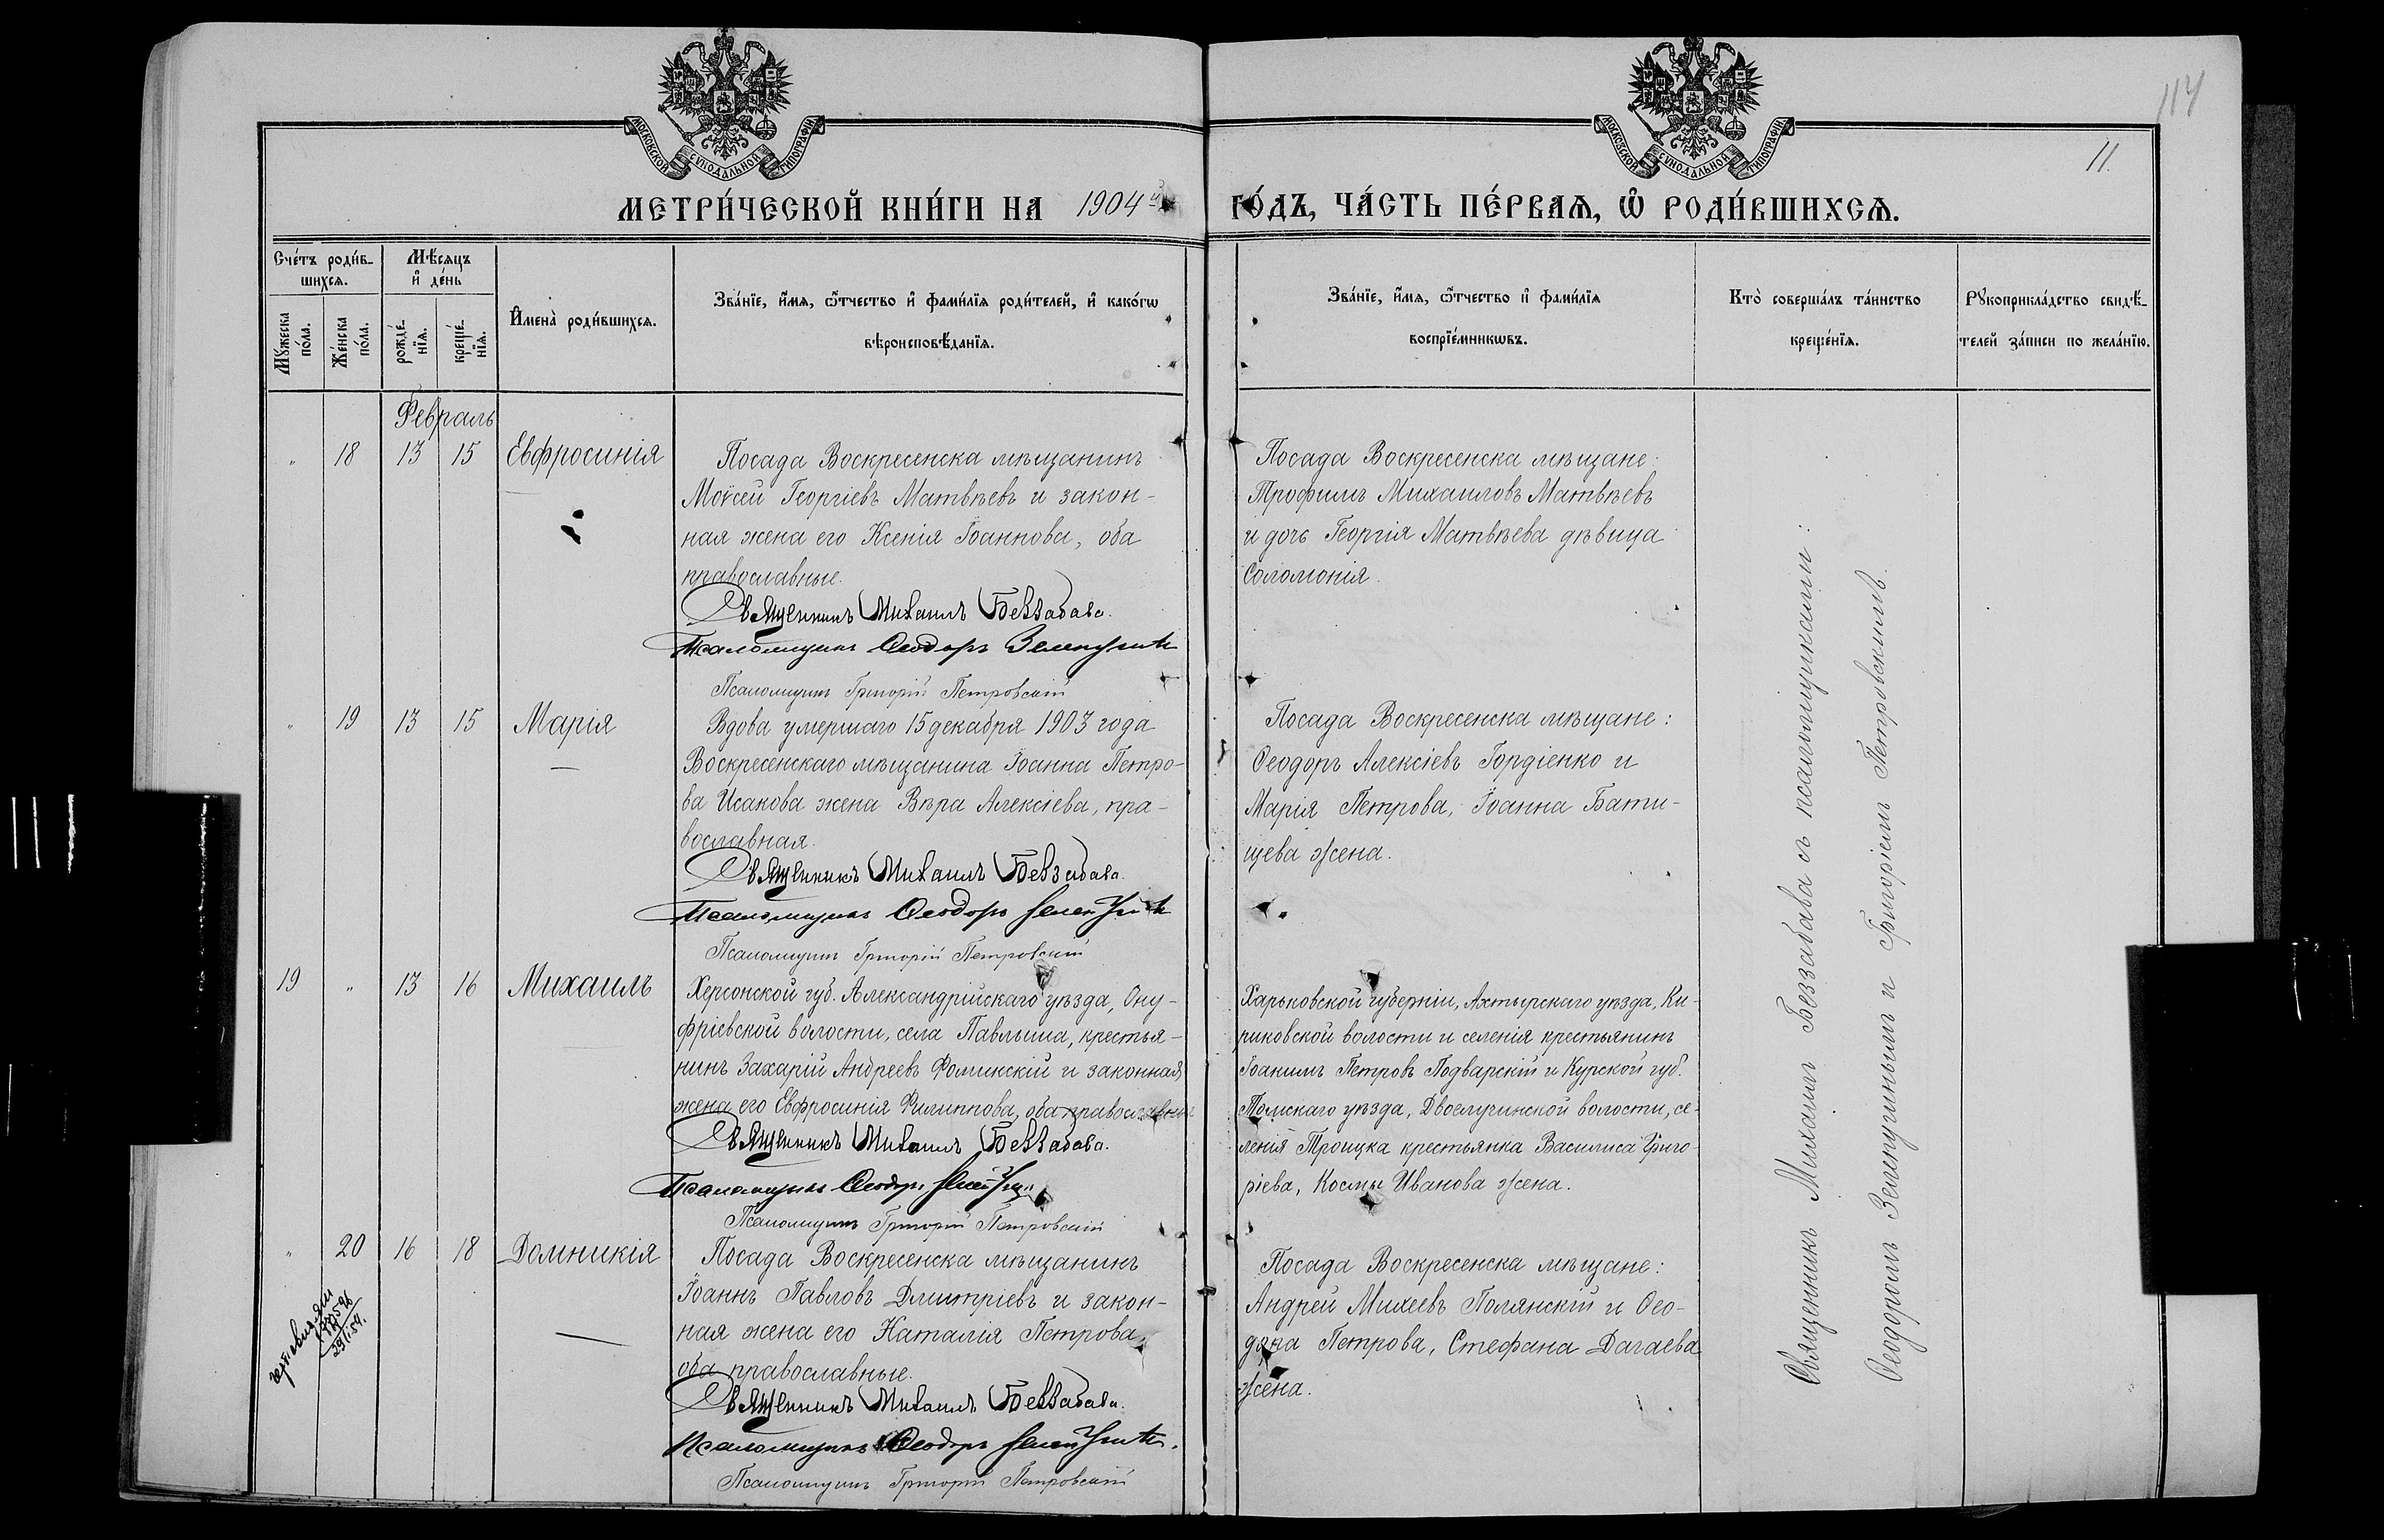 114
11.
МОСКОВСКОЙ СѴНОДАЛЬНОЙ ТИПОГРАФІИ
МОСКОВСКОЙ СѴНОДАЛЬНОЙ ТИПОГРАФІИ
МЕТРИ́ЧЕСКОЙ КНИ́ГИ НА 1904й ГО́ДЪ, ЧА́СТЬ ПЕ́РВАѦ, Ѡ҆ РОДИ́ВШИХСѦ.
Сче́тъ роди́в-
шихсѧ.
Мꙋжеска
по́ла.
Же́нска
по́ла.
Мѣ́сѧцъ
и҆ де́нь
рожде́-
нїѧ.
креще́-
нїѧ.
И҆мена̀ роди́вшихсѧ.
Зва́нїе, и҆́мѧ, ѻ҆́тчество и҆ фами́лїѧ роди́телей, и҆ како́гѡ
вѣроисповѣ́данїѧ.
Зва́нїе, и҆́мѧ, ѻ҆́тчество и҆ фами́лїѧ
воспрїе́мникѡвъ.
Кто̀ соверша́лъ та́инство
креще́нїѧ.
Рꙋкоприкла́дство свидѣ́-
телей за́писи по жела́нїю.
Февраль
" 18 13 15 Евфросинія
Посада Воскресенска мѣщанинъ
Моѵсей Георгіевъ Матвѣевъ и закон-
ная жена его Ксенія Іоаннова, оба
православные.
Священникъ Михаилъ Беззабава.
Псаломщикъ Ѳеодоръ
Псаломщикъ Григорій Петровскій
Посада Воскресенска мѣщане:
Трофимъ Михаиловъ Матвѣевъ
и дочь Георгія Матвѣева дѣвица
Соломонія.
" 19 13 15 Марія
Вдова умершаго 15 декабря 1903 года
Воскресенскаго мѣщанина Іоанна Петро-
ва Исакова жена Вѣра Алексіева, пра-
вославная.
Священникъ Михаилъ Беззабава.
Псаломщикъ Ѳеодоръ
Псаломщикъ Григорій Петровскій
Посада Воскресенска мѣщане:
Ѳеодоръ Алексіевъ Гордіенко и
Марія Петрова, Іоанна Бати-
щева жена.
19 " 13 16 Михаилъ
Херсонской губ. Александрійскаго уѣзда, Ону-
фріевской волости, села Павлыша, крестья-
нинъ Захарій Андреевъ Фоминскій и законная
жена его Евфросинія Филиппова, оба православные
Священникъ Михаилъ Беззабава.
Псаломщикъ Ѳеодоръ
Псаломщикъ Григорій Петровскій
Харьковской губерніи, Ахтырскаго уѣзда, Ки-
риковской волости и селенія крестьянинъ
Іоакимъ Петровъ Подварскій и Курской губ.
уѣзда, Двоелучинской волости, се-
ленія Троицка крестьянка Василиса Григо-
ріева, Космы Иванова жена.
" 20 16 18 Домникія
Посада Воскресенска мѣщанинъ
Іоаннъ Павловъ Дмитріевъ и закон-
ная жена его Наталія Петрова,
оба православные.
Священникъ Михаилъ Беззабава.
Псаломщикъ Ѳеодоръ
Псаломщикъ Григорій Петровскій
Посада Воскресенска мѣщане:
Андрей Михеевъ Полянскій и Ѳео-
дора Петрова, Стефана Дагаева
жена.
Священникъ Михаилъ Беззабава съ псаломщиками:
Ѳеодоромъ Зелепугинымъ и Григоріемъ Петровскимъ.